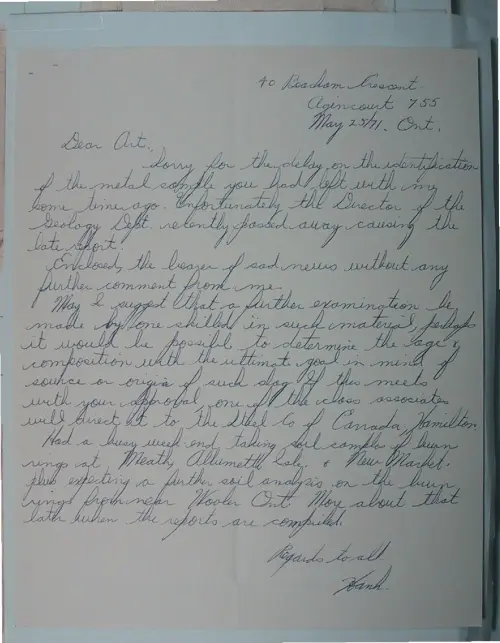 40 Beacham Crescent
Agincourt 755
May 25/71. Ont.
Dear Art,
Sorry for the delay on the identification
of the metal sample you had left with me
some time ago. Unfortunately the Director of the
Geology Dept. recently passed away causing the
late report.
Enclosed, the bearer of sad news without any
further comment from me.
May I suggest that a further examination be
made by one skilled in such material, perhaps
it would be possible to determine the age &
composition with the ultimate goal in mind of
source or origin of such slag. If this meets
with your approval one of the class associates
will direct it to The Steel Co of Canada, Hamilton.
Had a busy week end taking soil samples of burn
rings at Meath, Allumette Isle. & New Market.
plus expecting a further soil analysis on the burn
rings from near Wooler Ont. More about that
later when the reports are compiled.
Regards to all
Hank.